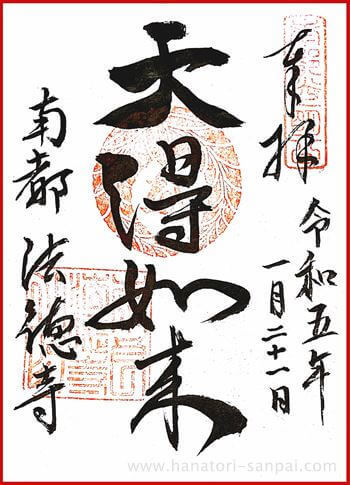 奉拝
令和五年
一月二十一日
天得如来
南都 法徳寺
www.hanatori-sanpai.com